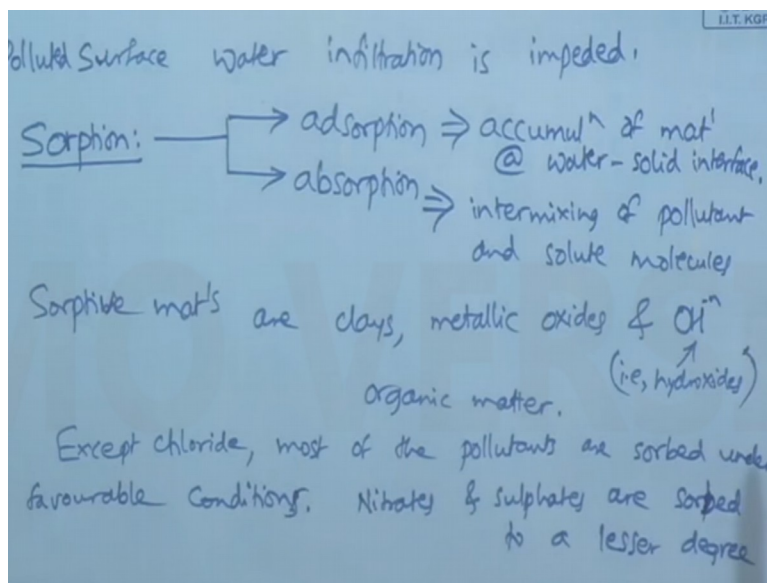 I.I.T. KGP
Polluted Surface water infiltration is impeded.
Sorption: → adsorption ⇒ accumulⁿ of mat'l
@ water-solid interface.
→ absorption ⇒ intermixing of pollutant
and solute molecules
Sorptive mat's are clays, metallic oxides & OHⁿ
(i.e, hydroxides)
organic matter.
Except chloride, most of the pollutants are sorbed under
favourable conditions. Nitrates & sulphates are sorbed
to a lesser degree